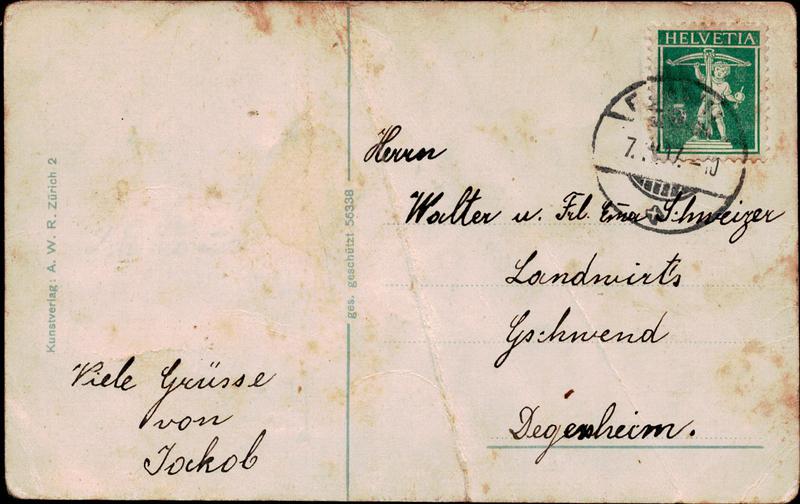 HELVETIA
7. 17.-10
Herrn
Walter u. Frl. Emma Schweizer
Landwirts
Gschwend
Degersheim.
Viele Grüsse
von
Jakob
ges. geschützt 56338
Kunstverlag: A. W. R. Zürich 2